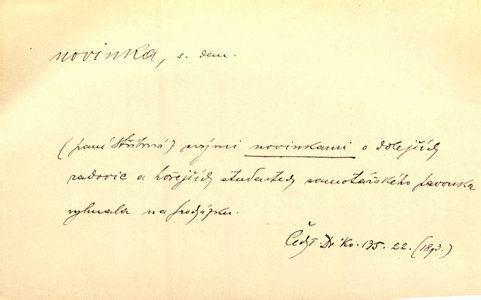 novinka, s. dem.
(paní Stříbrná) svými novinkami o dolejších
radovic a hořejších studentech samotářského pavouka
vyhnala na
Čech. 135. 22. (189